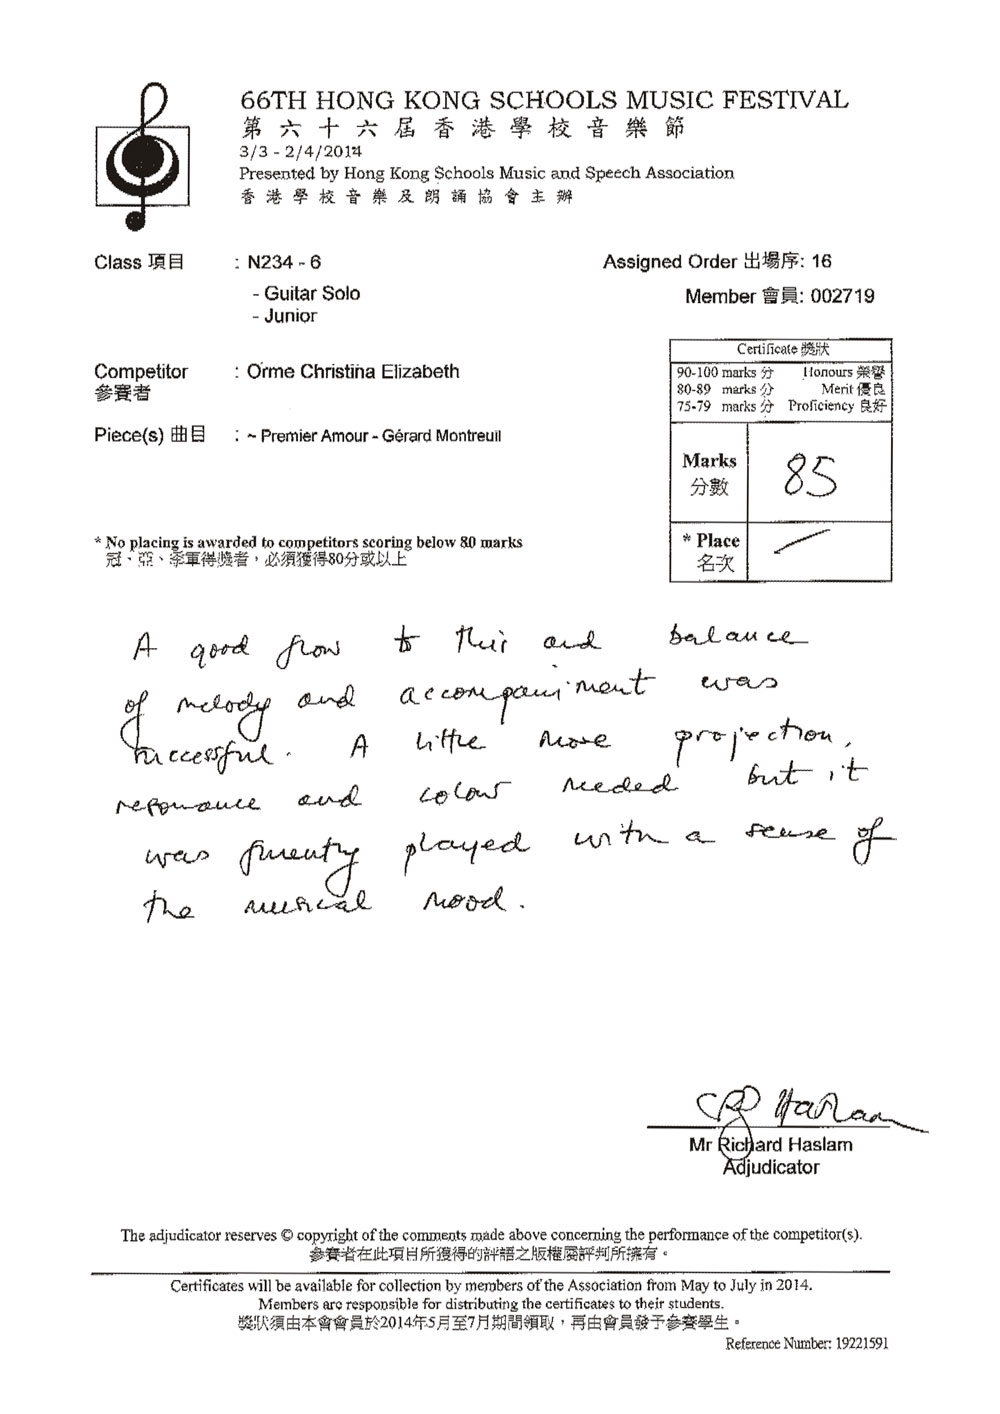 66TH HONG KONG SCHOOLS MUSIC FESTIVAL
第六十六屆香港學校音樂節
3/3 - 2/4/2014
Presented by Hong Kong Schools Music and Speech Association
香港學校音樂及朗誦協會主辦
Class 項目 : N234 - 6
Assigned Order 出場序: 16
- Guitar Solo
Member 會員: 002719
- Junior
Certificate 獎狀
90-100 marks 分 Honours 榮譽
80-89 marks 分 Merit 優良
75-79 marks 分 Proficiency 良好
Competitor : Orme Christina Elizabeth
參賽者
Piece(s) 曲目 : ~ Premier Amour - Gérard Montreuil
Marks 85
分數
* Place /
名次
* No placing is awarded to competitors scoring below 80 marks
冠、亞、季軍得獎者，必須獲得80分或以上
A good flow to this and balance
of melody and accompaniment was
successful. A little more projection,
resonance and colour needed but it
was fluently played with a sense of
the musical mood.
Haslam
Mr Richard Haslam
Adjudicator
The adjudicator reserves © copyright of the comments made above concerning the performance of the competitor(s).
參賽者在此項目所獲得的評語之版權屬評判所擁有。
Certificates will be available for collection by members of the Association from May to July in 2014.
Members are responsible for distributing the certificates to their students.
獎狀須由本會會員於2014年5月至7月期間領取，再由會員發予參賽學生。
Reference Number: 19221591